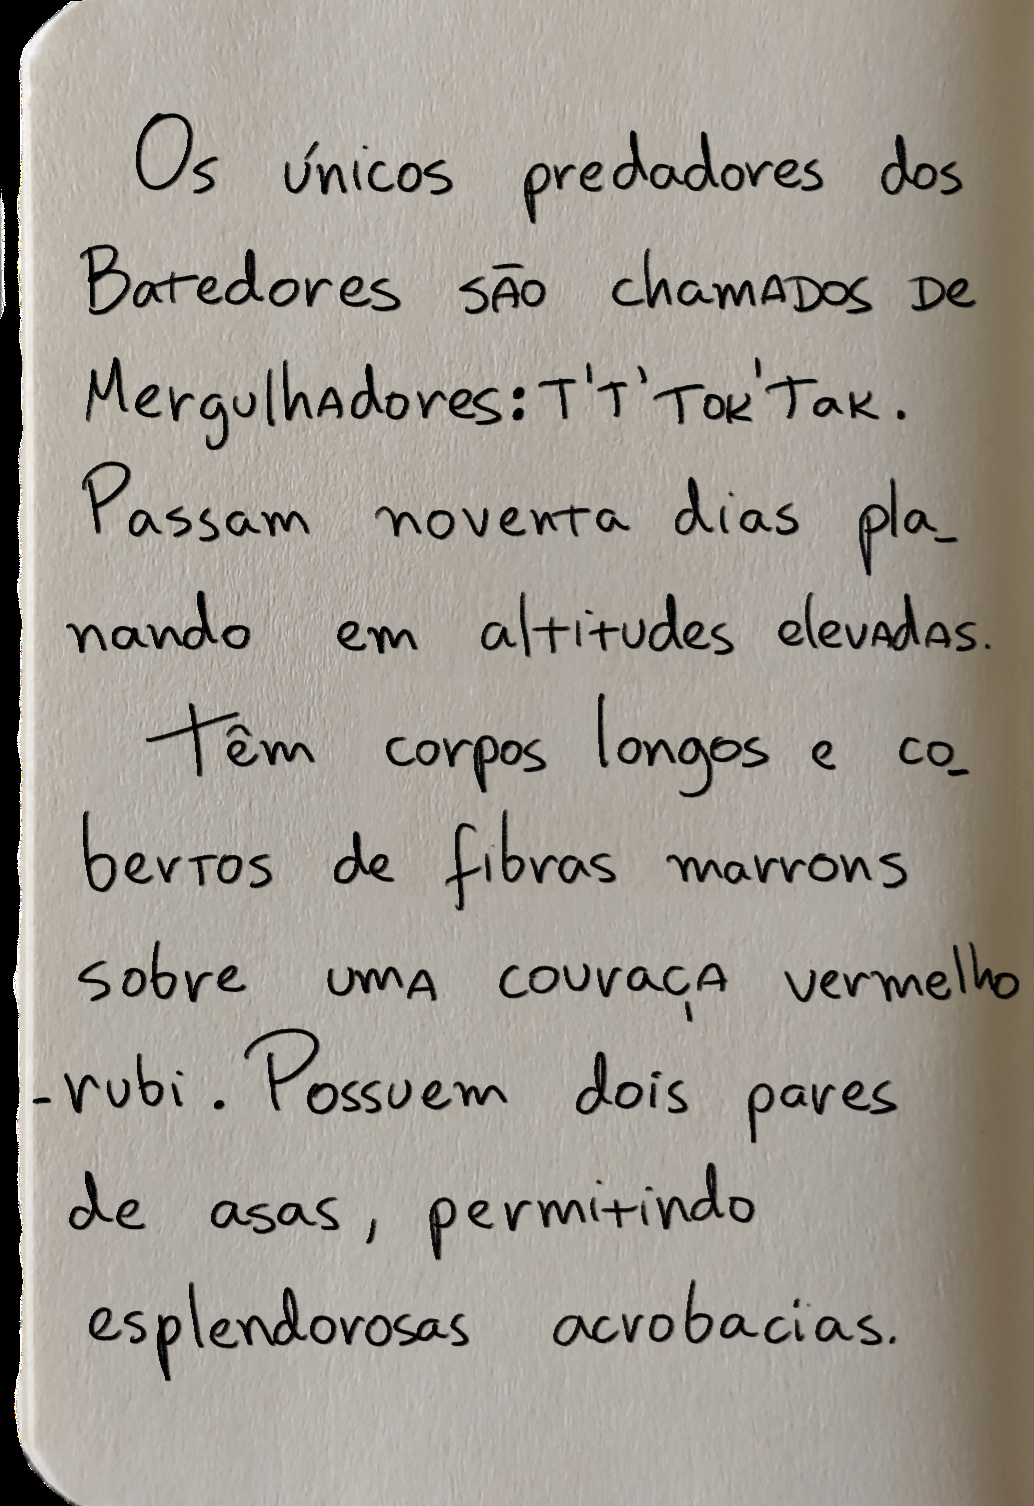 Os únicos predadores dos
Batedores são chamados de
Mergulhadores: T'T'Tok'Tak.
Passam noventa dias pla-
nando em altitudes elevadas.
Têm corpos longos e co-
bertos de fibras marrons
sobre uma couraça vermelho
-rubi. Possuem dois pares
de asas, permitindo
esplendorosas acrobacias.